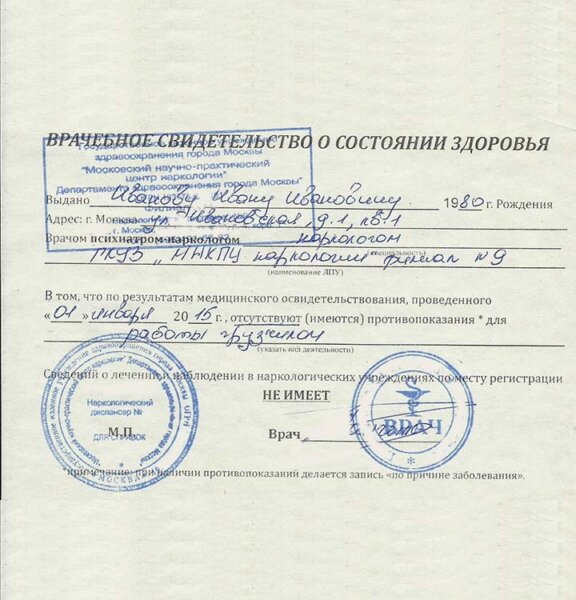 ВРАЧЕБНОЕ СВИДЕТЕЛЬСТВО О СОСТОЯНИИ ЗДОРОВЬЯ
здравоохранения города Москвы
"Московский научно-практический
центр наркологии"
Департамента здравоохранения города Москвы"
Филиал
Выдано Иванову Ивану Ивановичу. 1980 г. Рождения
Адрес: г. Москва ул. Ивановская д.1, кв.1
Врачом психиатром-наркологом наркологом
(специальность)
ГКУЗ „ МНПЦ наркологии филиал №9
(наименование ЛПУ)
В том, что по результатам медицинского освидетельствования, проведенного
«01» января 2015 г., отсутствуют (имеются) противопоказания * для
работы грузчиком
(указать вид деятельности)
Сведений о лечении и наблюдении в наркологических учреждениях по месту регистрации
НЕ ИМЕЕТ
Наркологический
диспансер №
М.П.
ДЛЯ СПРАВОК
МОСКВА
ВРАЧ
Врач
* примечание: при наличии противопоказаний делается запись «по причине заболевания».